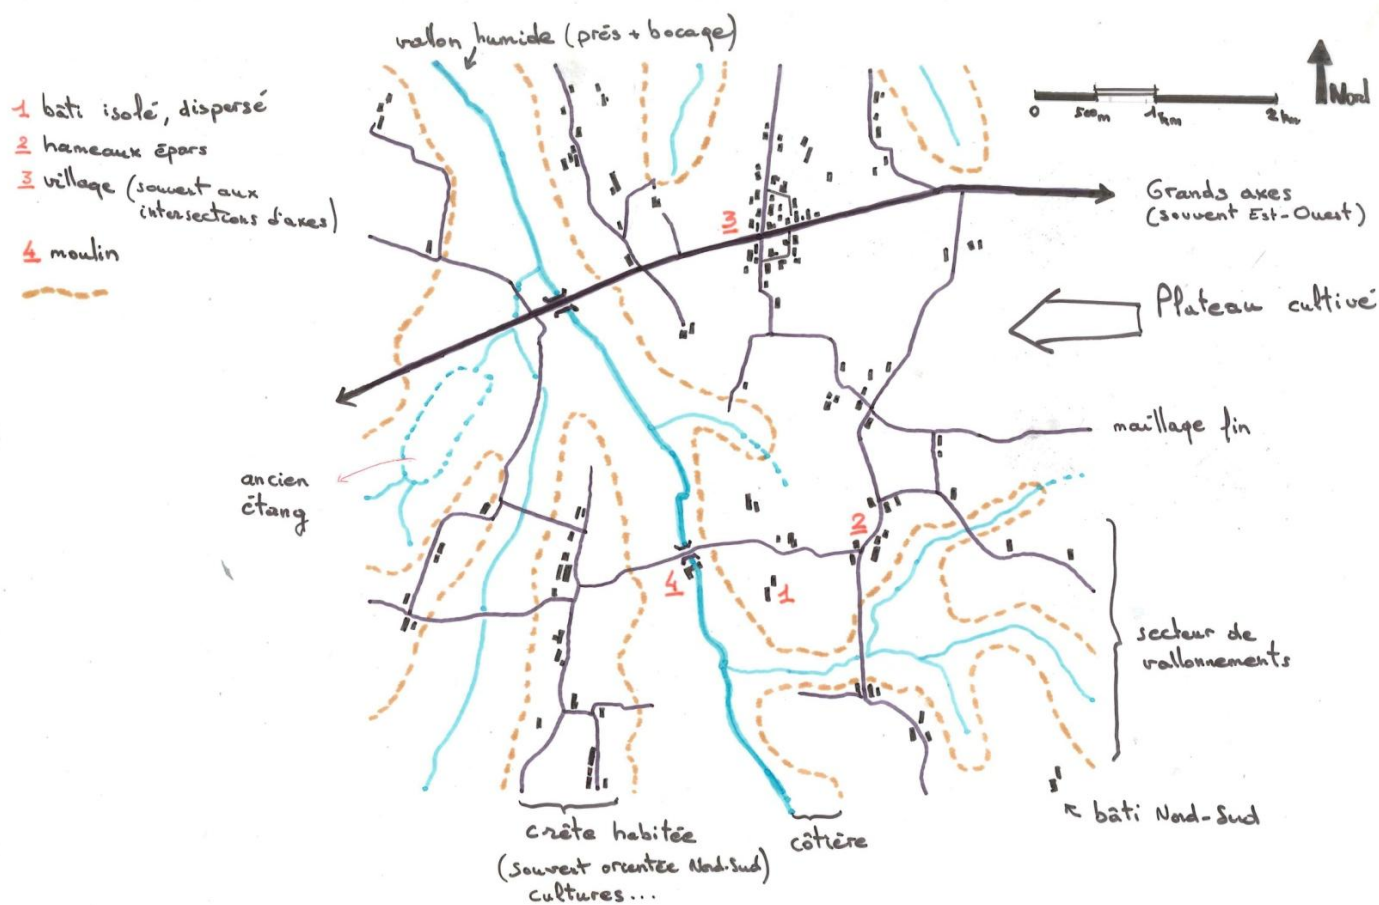 vallon humide (prés + bocage)
1 bâti isolé, dispersé
2 hameaux épars
3 village (souvent aux
intersections d'axes)
4 moulin
Nord
0 500m 1km 2km
Grands axes
(souvent Est-Ouest)
Plateau cultivé
maillage fin
3
2
4
1
ancien
étang
secteur de
vallonnements
bâti Nord-Sud
crête habitée
(souvent orientée Nord-Sud)
cultures...
côtière